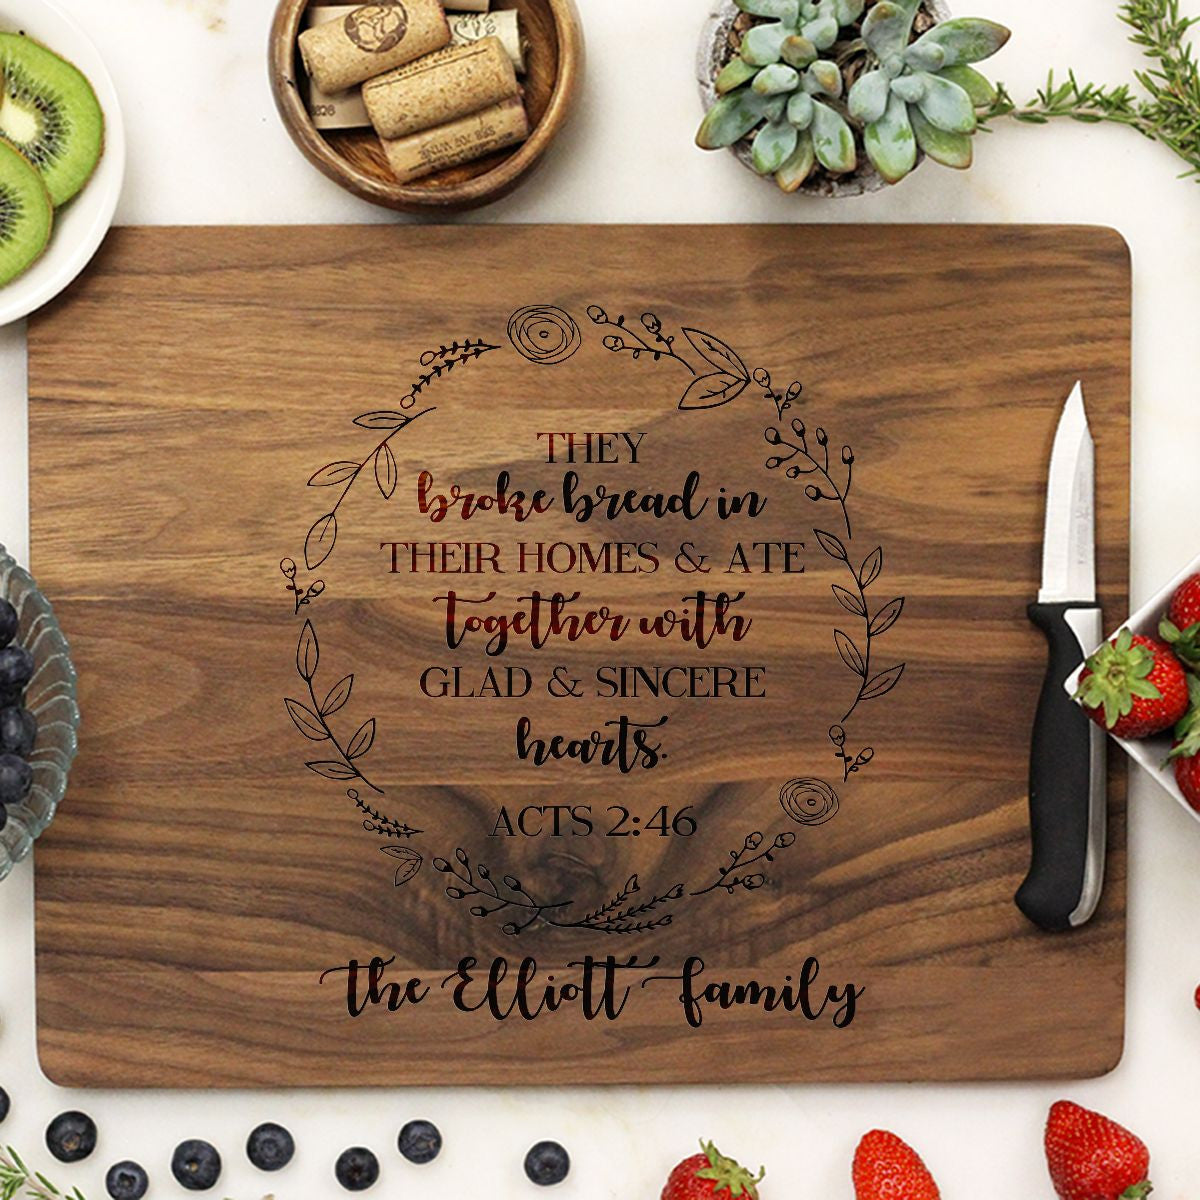 THEY
broke bread in
THEIR HOMES & ATE
together with
GLAD & SINCERE
hearts.
ACTS 2:46
the Elliott family